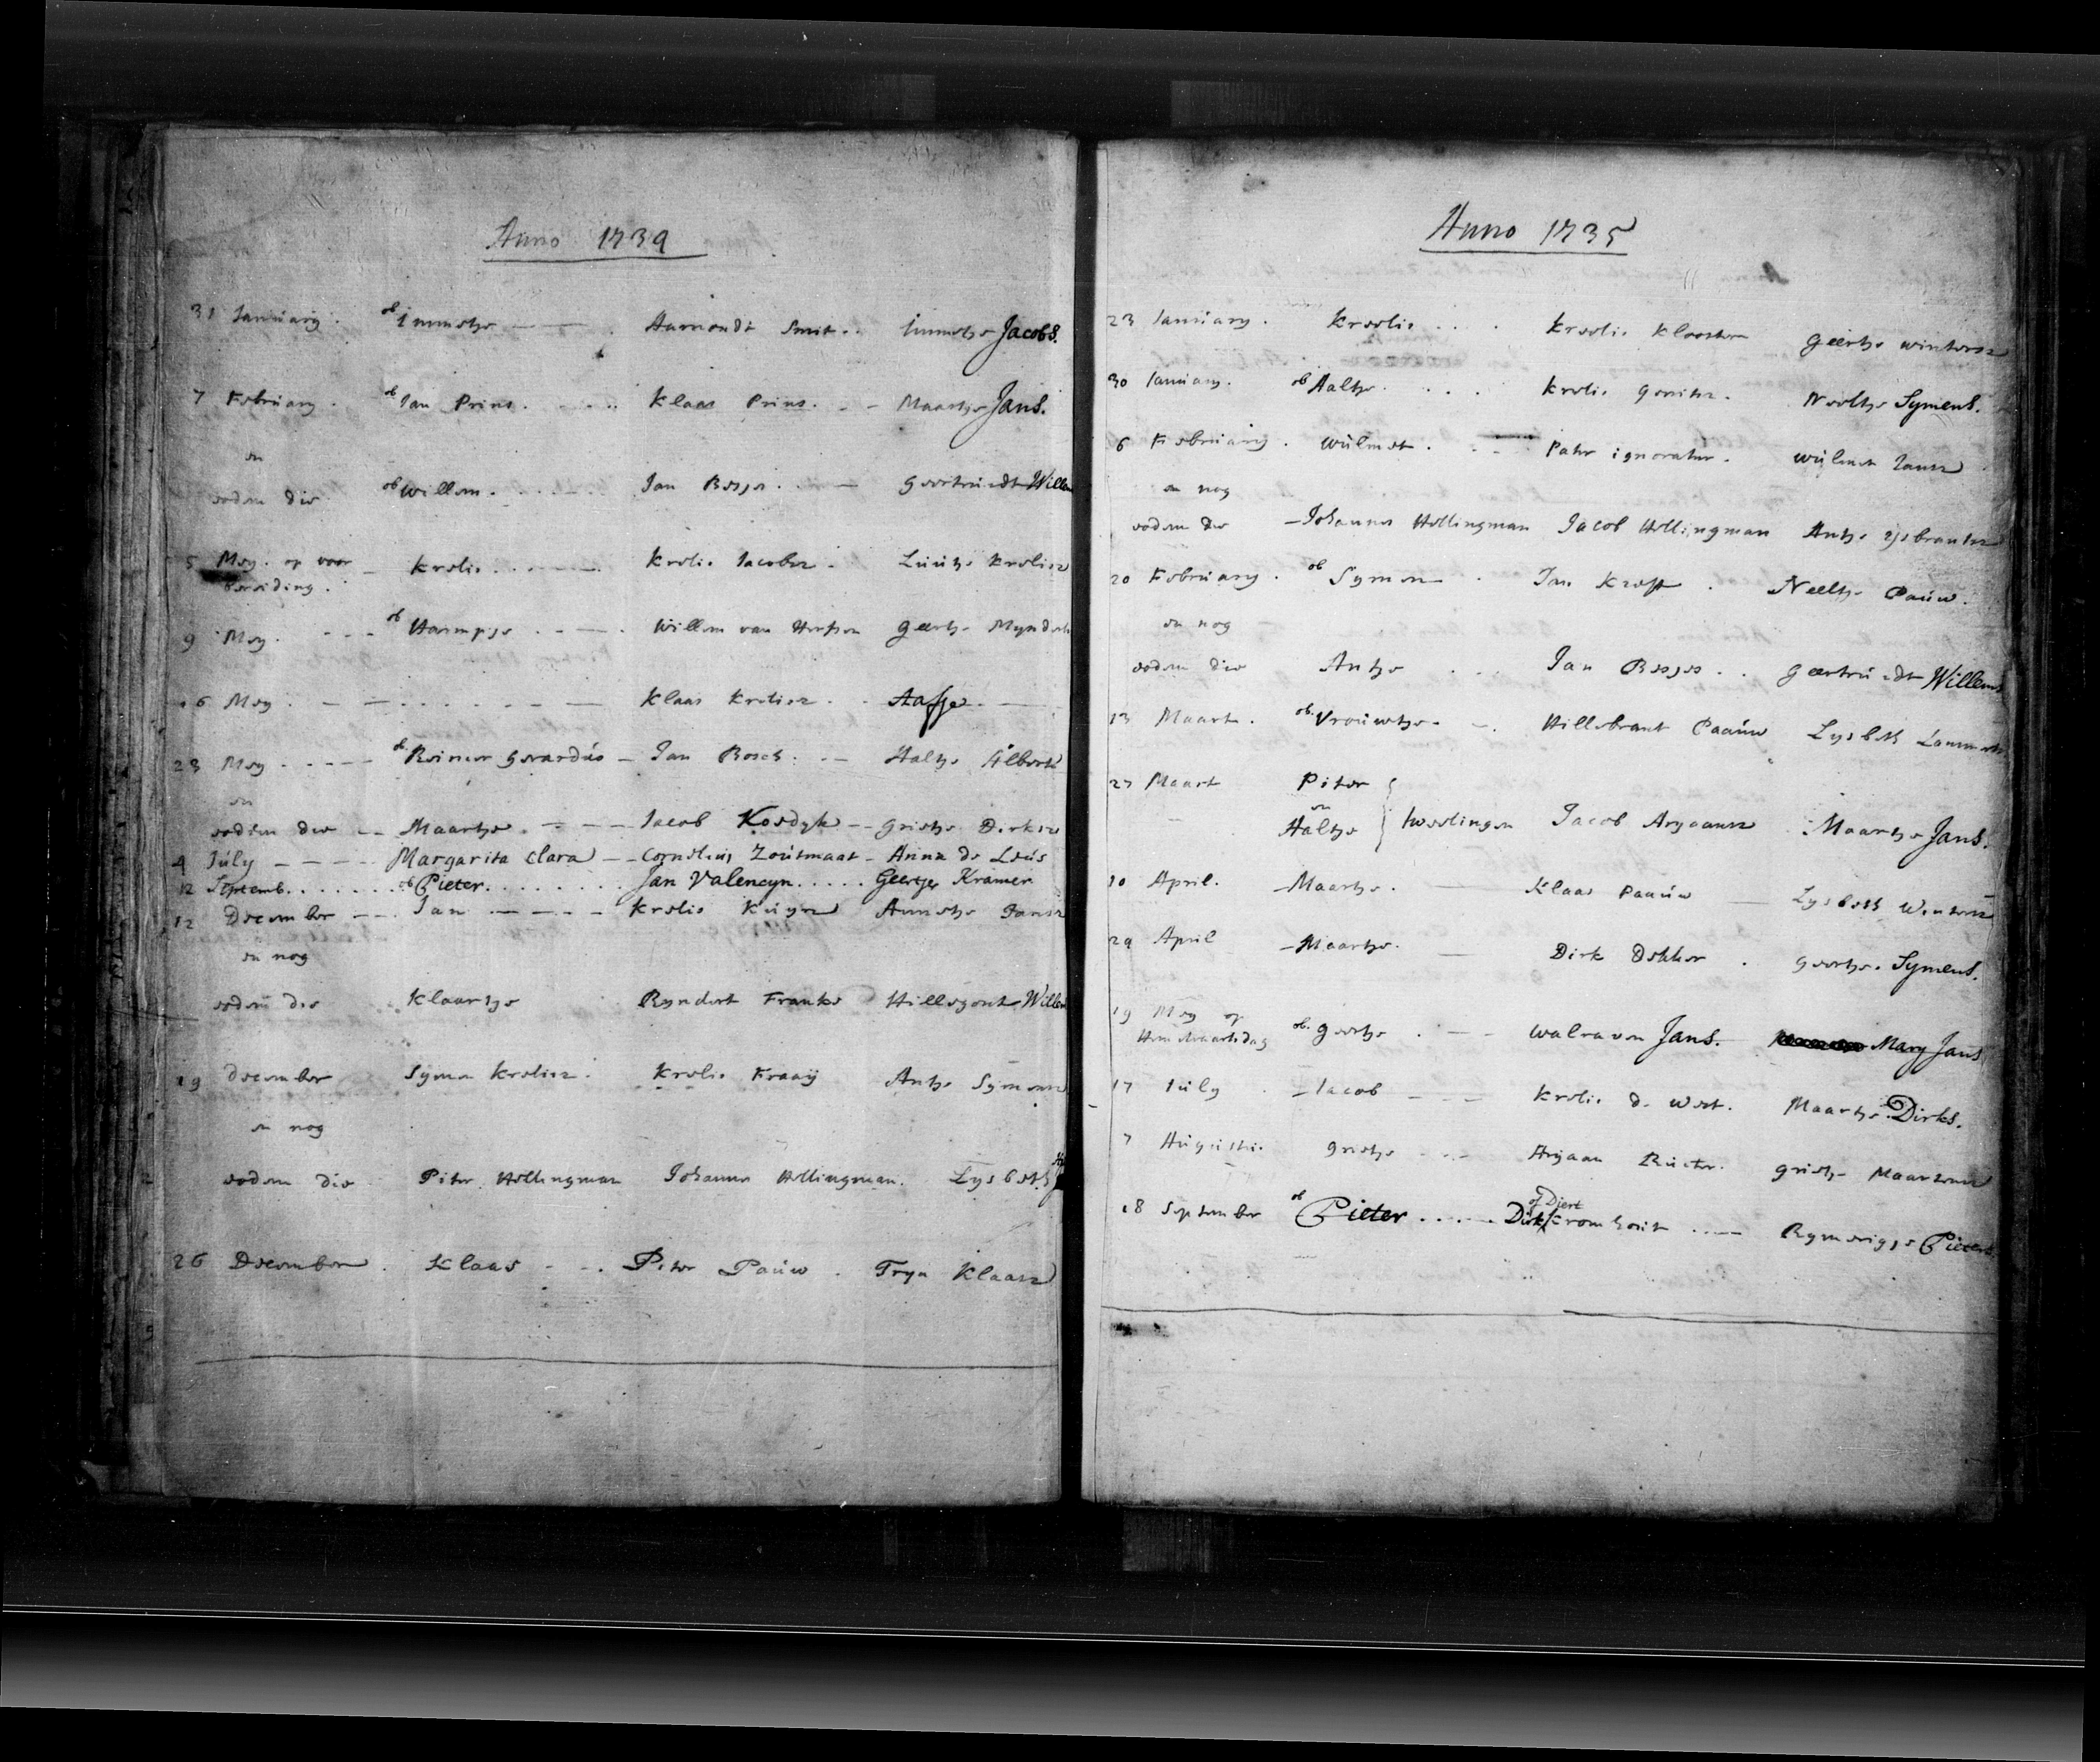 Anno 1734
31 January. ob Immetje Aarnoudt Smit.. Immetje Jacobs.
7 February. ob Jan Prins. Klaas Prins. Maartje Jans.
en
eodem die ob willem. Jan Besjes. Geertruidt Willem
5 Mey. op voor Krelis Krelis Jacobsz. Luutje Krelisz
bereiding.
9 Mey. ob Harmpje willem van Geertje Mynderts
16 Mey. Klaas Krelisz. Aafje
23 Mey ob. Reinier Gerardus Jan Bosch. Aaltje Alberts
en
eodem die Maartje Jacob Koedyk Grietje Dirksz
4 July Margarita Clara Cornelius Zoutmaat Anna de Leus
12 Septemb. ob Pieter. Jan Valencyn. Geertjer Kramer
12 December Jan Krelis Kuyn Annetje Jansz
en nog
eodem die Klaartje Ryndert Franks Hillegont Willem
19 December Symen Krelisz. Krelis Fraaij Antje Symonsz
en nog
eodem die Piter Hellingman Johannes Hellingman. Lysbeth
26 December. Klaas Piter Pauw. Tryn Klaasz
Anno 1735
23 January. Kreelis Kreelis Klooster Geertje wintersz
30 January. ob Aaltje. Krelis Gerritsz. Neeltje Symens.
6 February. Wulmet. Pater ignoratur. Wulmet Jansz
en nog
eodem die Johannes Hellingman Jacob Hellingman Antje Ysbrantsz
20 February. ob Symen Jan Kroft. Neeltje Pauw.
en nog
eodem die Antje Jan Besjes.. Geertruidt Willems
13 Maart. ob. Vrouwtje. Hillebrant Paauw Lysbeth Lammerts
27 Maart Piter
en
Aaltje tweelingen Jacob Aryaansz Maartje Jans.
10 April. Maartje. Klaas Paauw Lysbeth Wintersz
24 April Maartje. Dirk Dekker. Geertje. Symens.
19 Mey op
Hemelvaartsdag ob. Geertje walraven Jans. Mary Jans
17 July Jacob Krelis de Wet. Maartje Dirks.
7 Augusti. Grietje Aryaan Ruiter. Grietje Maartensz
of Djert
18 September ob Pieter Dirk Kromhout Rymerigje Pieters